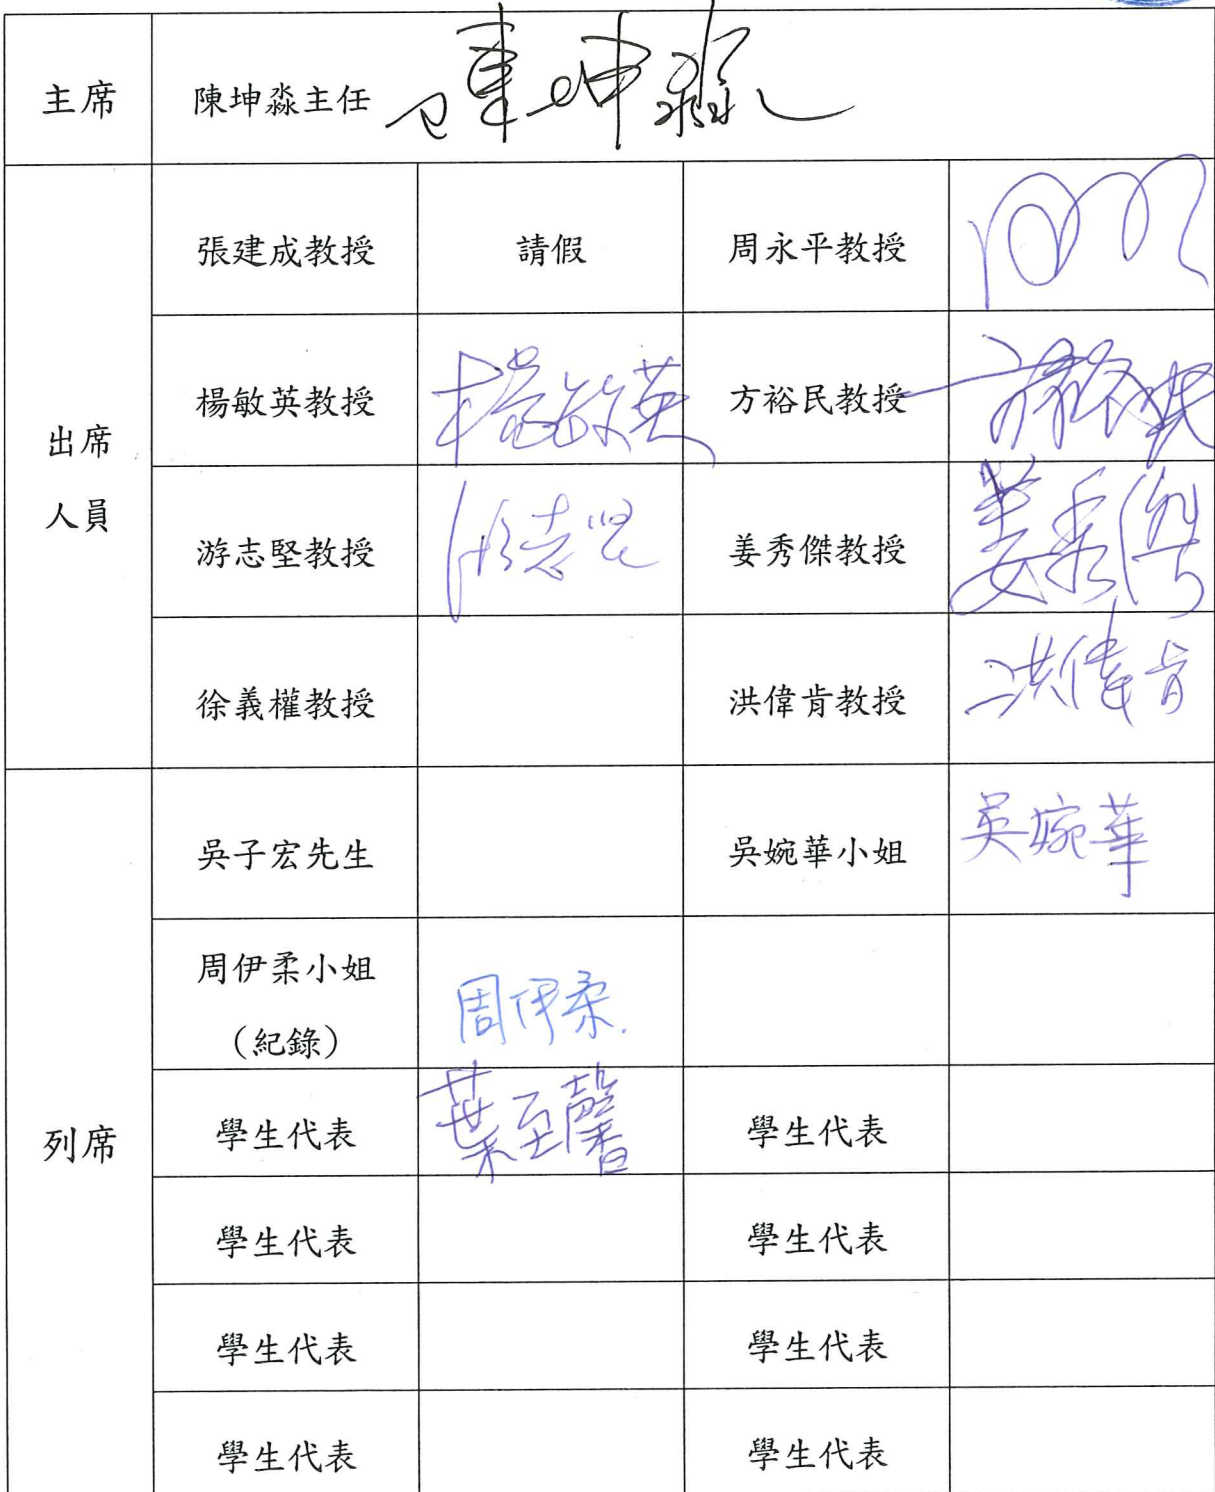 主席 陳坤淼主任 陳坤淼
出席
人員
張建成教授 請假 周永平教授
楊敏英教授 楊敏英 方裕民教授 方裕民
游志堅教授 游志堅 姜秀傑教授 姜秀傑
徐義權教授 洪偉肯教授 洪偉肯
列席
吳子宏先生 吳婉華小姐 吳婉華
周伊柔小姐
（紀錄） 周伊柔
學生代表 葉至馨 學生代表
學生代表 學生代表
學生代表 學生代表
學生代表 學生代表